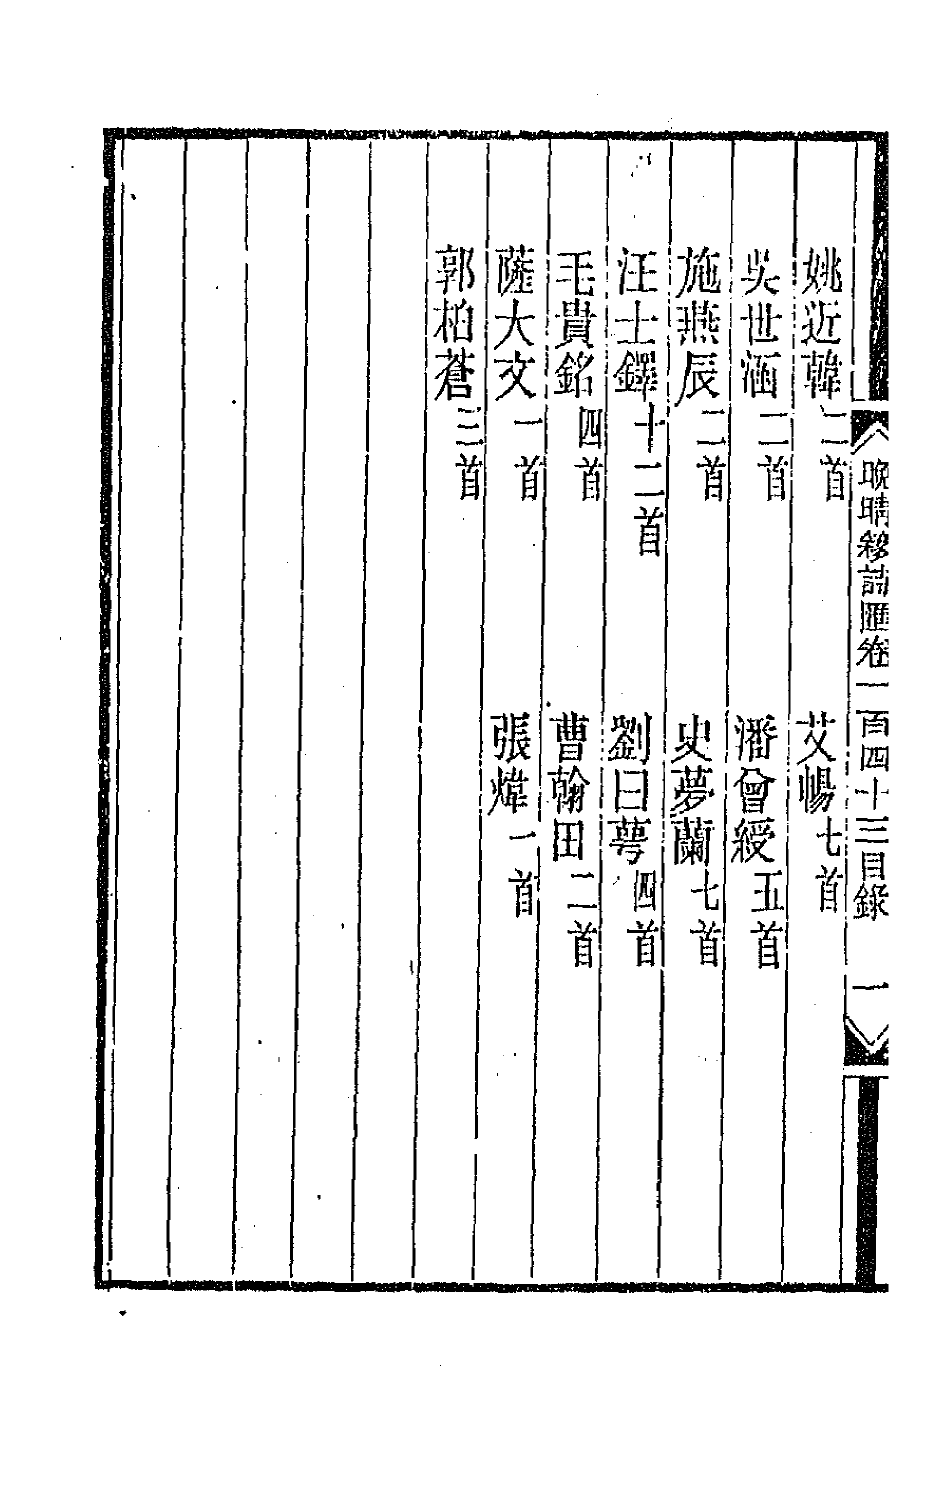 晚晴簃詩匯卷一百四十三目錄 一
姚近韓二首 艾暢七首
吳世涵二首 潘曾綬五首
施燕辰二首 史夢蘭七首
汪士鐸十二首 劉曰萼四首
毛貴銘四首 曹翰田二首
薩大文一首 張煒一首
郭柏蒼三首